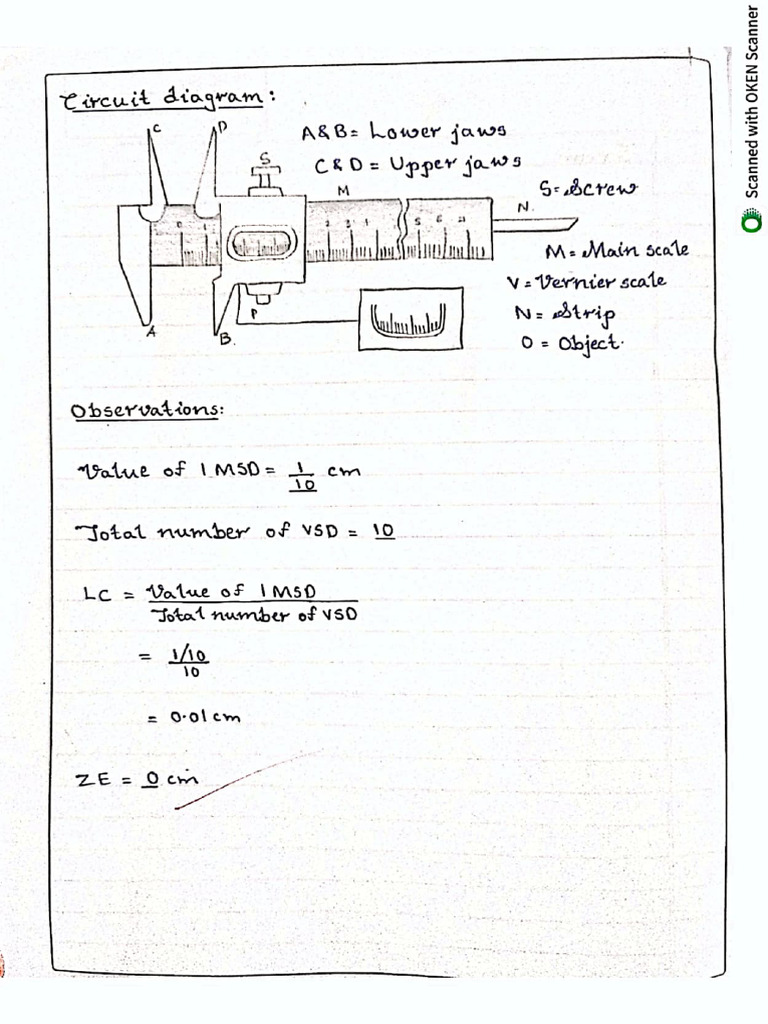 Circuit diagram:
C
D
A & B = Lower jaws
C & D = Upper jaws
S
M
S = Screw
N.
0 1 2 3
5 6
M = Main scale
V = Vernier scale
P
N = Strip
A
B.
O = Object.
Observations:
Value of 1 MSD = 1/10 cm
Total number of VSD = 10
LC = Value of 1 MSD
Total number of VSD
= 1/10
10
= 0.01 cm
ZE = 0 cm
Scanned with OKEN Scanner